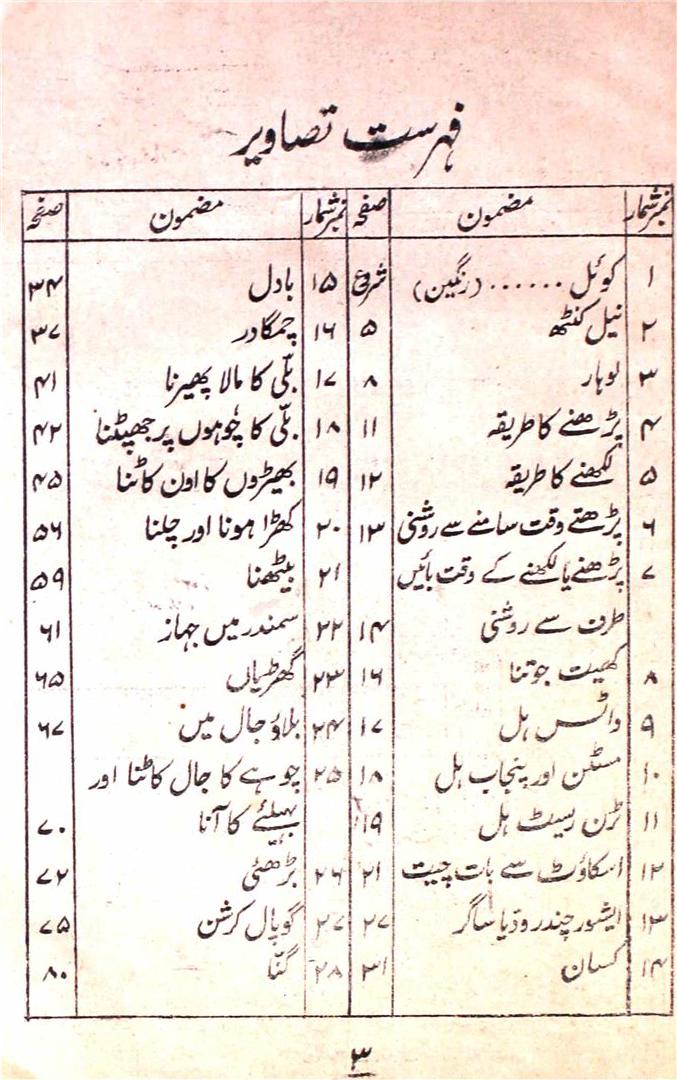 فہرست تصاویر
نمبرشمار مضمون صفحہ نمبرشمار مضمون صفحہ
۱ کوئل ...... (رنگین) شروع ۱۵ بادل ۳۴
۲ نیل کنٹھ ۵ ۱۶ چمگادر ۳۷
۳ لوہار ۸ ۱۷ بلّی کا مالا پھیرنا ۴۱
۴ پڑھنے کا طریقہ ۱۱ ۱۸ بلّی کا چُوہوں پر جھپٹنا ۴۲
۵ لکھنے کا طریقہ ۱۲ ۱۹ بھیڑوں کا اون کاٹنا ۴۵
۶ پڑھتے وقت سامنے سے روشنی ۱۳ ۲۰ کھڑا ہونا اور چلنا ۵۶
۷ پڑھنے یا لکھنے کے وقت بائیں ۲۱ بیٹھنا ۵۹
طرف سے روشنی ۱۴ ۲۲ سمندر میں جہاز ۶۱
۸ کھیت جوتنا ۱۶ ۲۳ گھڑیاں ۶۵
۹ واٹس ہل ۱۷ ۲۴ بلاؤ جال میں ۶۷
۱۰ مسٹن اور پنجاب ہل ۱۸ ۲۵ چوہے کا جال کاٹنا اور
۱۱ ٹرن رسیٹ ہل ۱۹ بہیلئے کا آنا ۷۰
۱۲ اسکاؤٹ سے بات چیت ۲۱ ۲۶ بڑھئی ۷۲
۱۳ ایشور چندر ودّیا ساگر ۲۷ ۲۷ گوپال کرشن ۷۵
۱۴ کسان ۳۱ ۲۸ گنّا ۸۰
۳